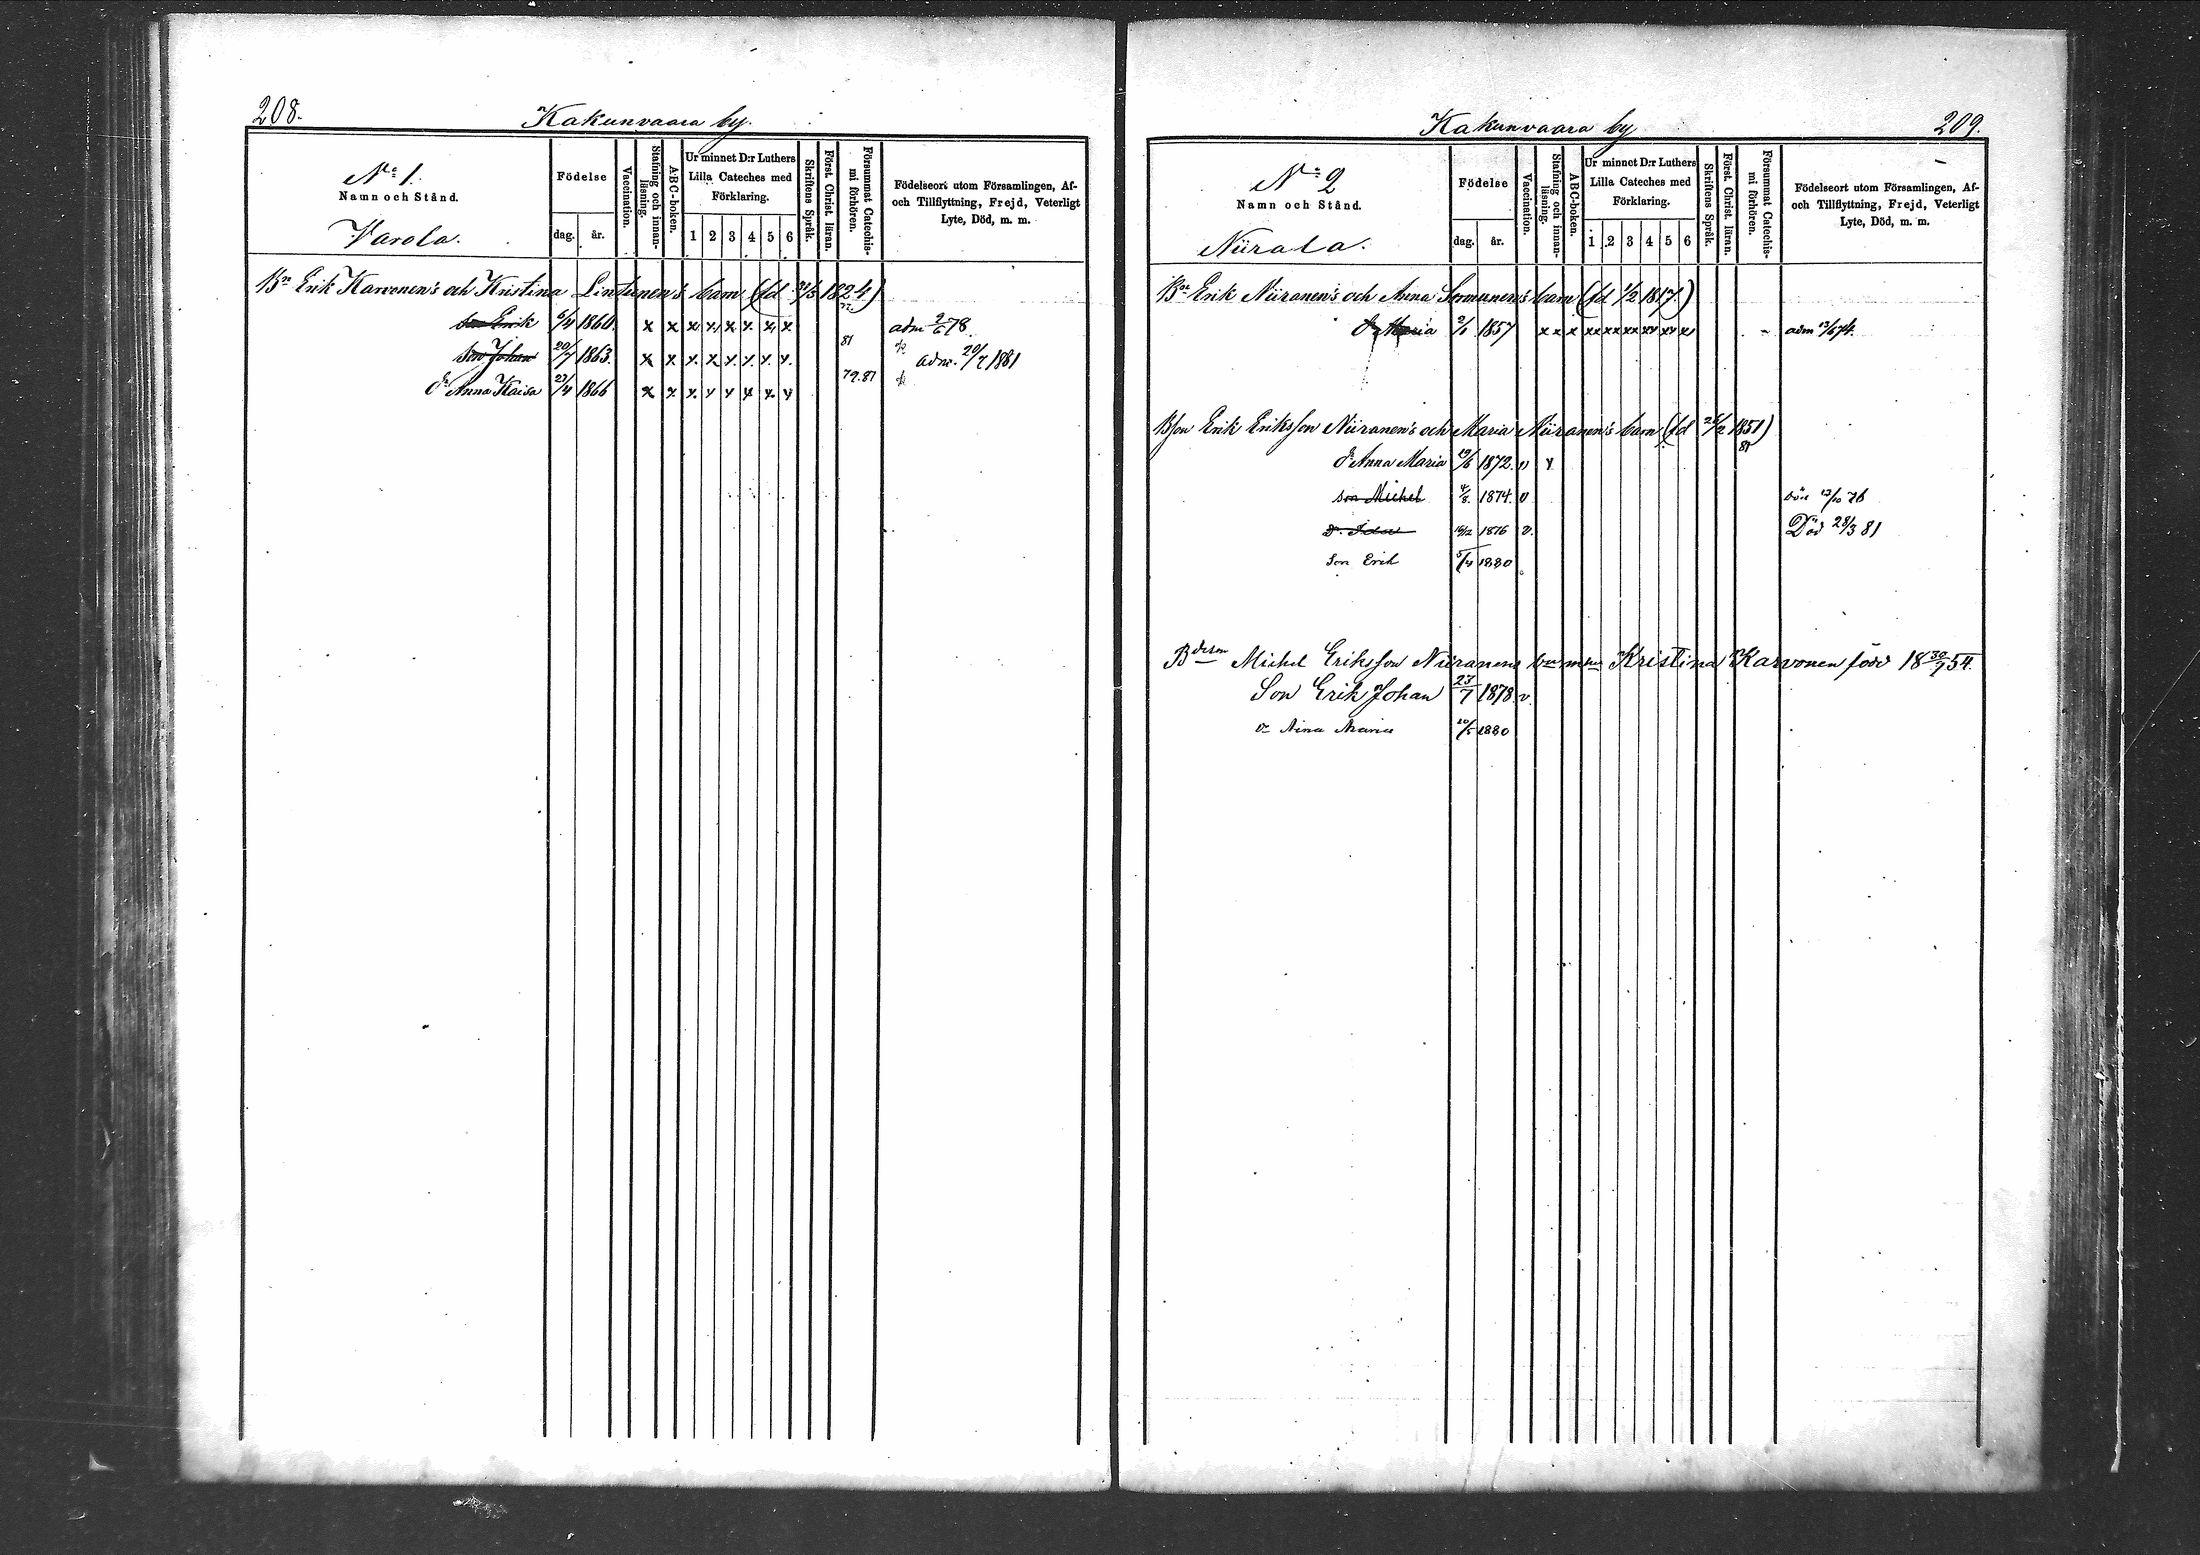 208.
Kakunvaara by.
No 1.
Namn och Stånd.
Varola.
Födelse
dag. år.
Vaccination.
Stafning och innanläsning.
ABC-boken.
Ur minnet D:r Luthers
Lilla Cateches med
Förklaring.
1 2 3 4 5 6
Skriftens Språk.
Först. Christ. läran.
Försummat Catechismi förhören.
Födelseort utom Församlingen, Af-
och Tillflyttning, Frejd, Veterligt
Lyte, Död, m. m.
Bn Erik Karvonen's och Kristina Lintunen's barn (fd /5 1824)
son Erik 6/4 1860. x x x x x x x x adm 2/6 78.
son Johan 20/7 1863. x x x x x x x x 81 adm. 20/7 1881
dr Anna Kaisa 27/4 1866 x x x x x x x x 79.81
Kakunvaara by
209.
No 2
Namn och Stånd.
Niirala.
Födelse
dag. år.
Vaccination.
Stafning och innanläsning.
ABC-boken.
Ur minnet D:r Luthers
Lilla Cateches med
Förklaring.
1 2 3 4 5 6
Skriftens Språk.
Först. Christ. läran.
Försummat Catechismi förhören.
Födelseort utom Församlingen, Af-
och Tillflyttning, Frejd, Veterligt
Lyte, Död, m. m.
Bn Erik Niiranen's och Anna Sormunen's barn (fd 1/2 1817.)
dr Maria 2/1 1857 x x x xx xx xx xx xx x - adm 13/6 74.
Bson Erik Eriksson Niiranen's och Maria Niiranen's barn (fd 26/2 1851)
81
dr Anna Maria 19/6 1872. v x
son Michel 4/8 1874. v död 13/10 76
Dr. Ida 16/12 1876 v. Död 28/3 81
Son Erik 5/4 1880
Bdeson Michel Eriksson Niiranens barn m hu Kristina Karvonen född 18 30/9 54.
Son Erik Johan 23/7 1878. v.
dr Aina Maria 20/5 1880